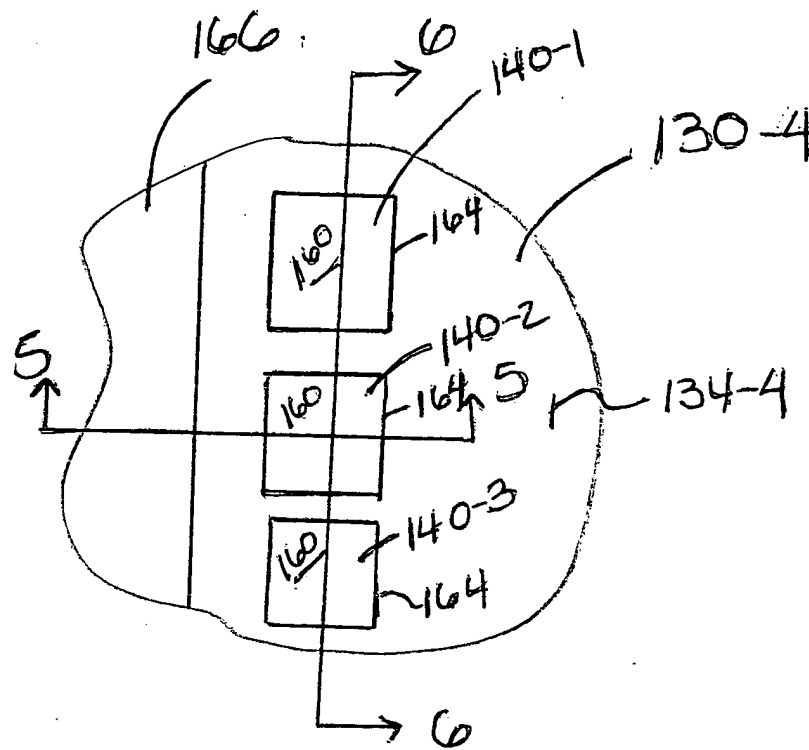 166
6
140-1
130-4
160
164
140-2
5
160
164
5
134-4
140-3
160
164
6